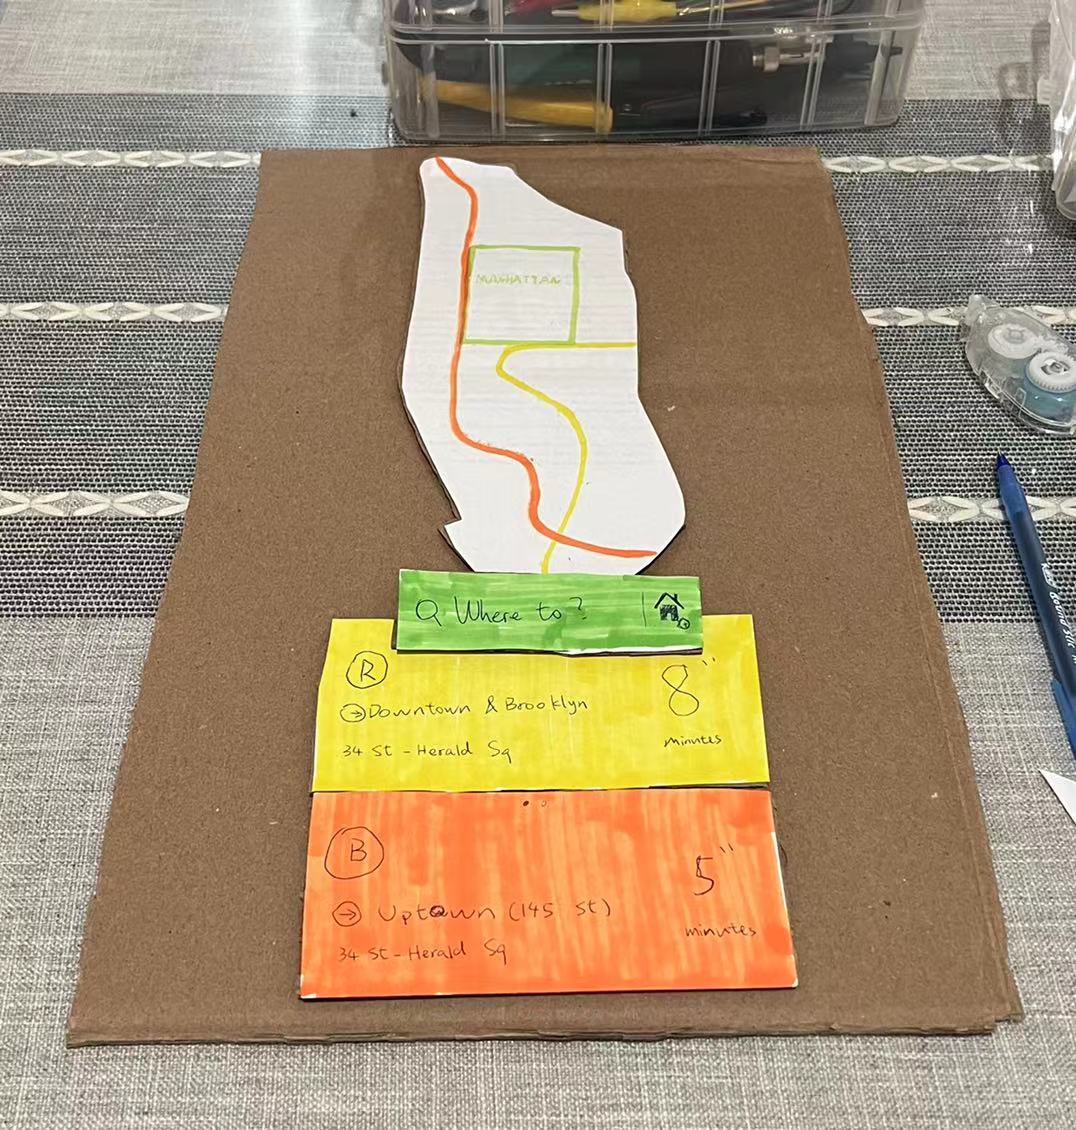 MANHATTAN
Where to?
R
8"
Downtown & Brooklyn
34 St - Herald Sq
minutes
B
5"
Uptown (145 St)
34 St - Herald Sq
minutes